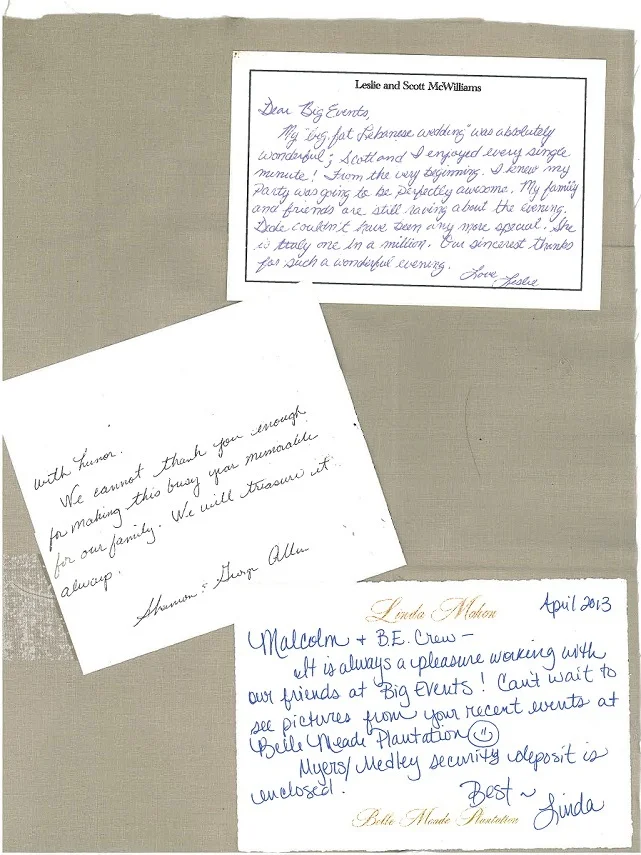 Leslie and Scott McWilliams
Dear Big Events,
My "big, fat Lebanese wedding" was absolutely
wonderful"; Scott and I enjoyed every single
minute! From the very beginning. I knew my
Party was going to be perfectly awesome. My family
and friends are still raving about the evening.
Dede couldn't have been any more special. She
is truly one in a million. Our sincerest thanks
for such a wonderful evening.
Love,
Leslie
with humor.
We cannot thank you enough
for making this busy year memorable
for our family. We will treasure it
always.
Shannon & George Allen
Linda Mahon
April 2013
Malcolm + B.E. Crew –
It is always a pleasure working with
our friends at Big Events! Can't wait to
see pictures from your recent events at
Belle Meade Plantation
Myers/Medley security deposit is
enclosed.
Best ~
Linda
Belle Meade Plantation